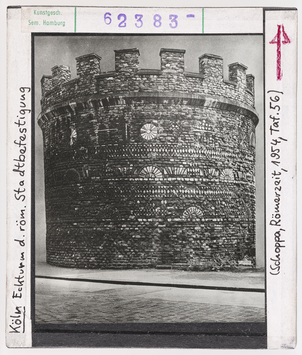 Kunstgesch.
Sem. Hamburg
62383
Köln Eckturm d. röm. Stadtbefestigung
(Schoppa, Römerzeit, 1954, Taf. 56)